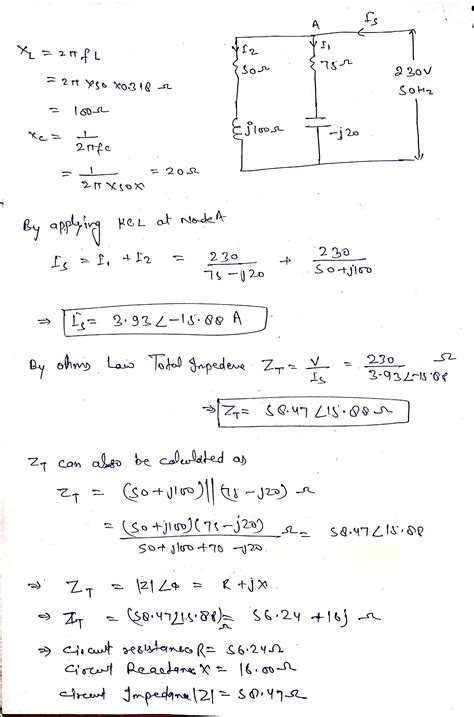 X_L = 2πfL
= 2π x50 x0.318 Ω
= 100Ω
X_C = 1/2πfc
= 1/2π x50x = 20Ω
A
I_s
I_2
I_1
50Ω
75Ω
230V
50Hz
j100Ω
-j20
By applying KCL at Node A
I_s = I_1 + I_2 = 230/75-j20 + 230/50+j100
⇒ I_s = 3.93∠-15.88 A
By ohms Law Total Impedence Z_T = V/I_s = 230/3.93∠-15.88 Ω
⇒ Z_T = 58.47∠15.88Ω
Z_T can also be calculated as
Z_T = (50+j100)||(75-j20) Ω
= (50+j100)(75-j20)/50+j100+75-j20 Ω = 58.47∠15.88
⇒ Z_T = |Z|∠φ = R+jX
⇒ Z_T = (58.47∠15.88)Ω = 56.24 +16j Ω
⇒ Circuit resistances R = 56.24Ω
Circuit Reactance X = 16.00Ω
Circuit Impedance |Z| = 58.47Ω